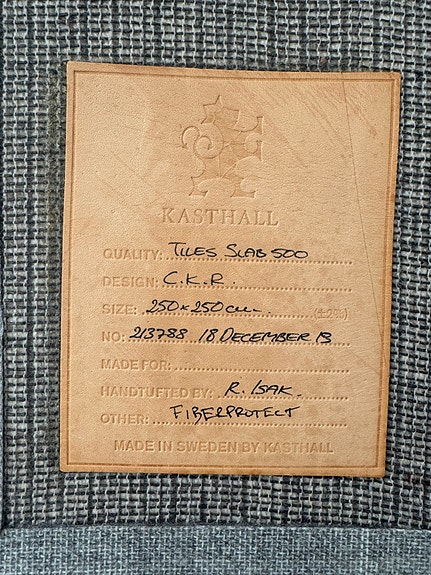 KASTHALL
QUALITY: TILES SLAB 500
DESIGN: C.K.R.
SIZE: 250 x 250 cm (±2%)
NO: 213788 18 DECEMBER 13
MADE FOR:
HANDTUFTED BY: R. ISAK.
OTHER: FIBERPROTECT
MADE IN SWEDEN BY KASTHALL